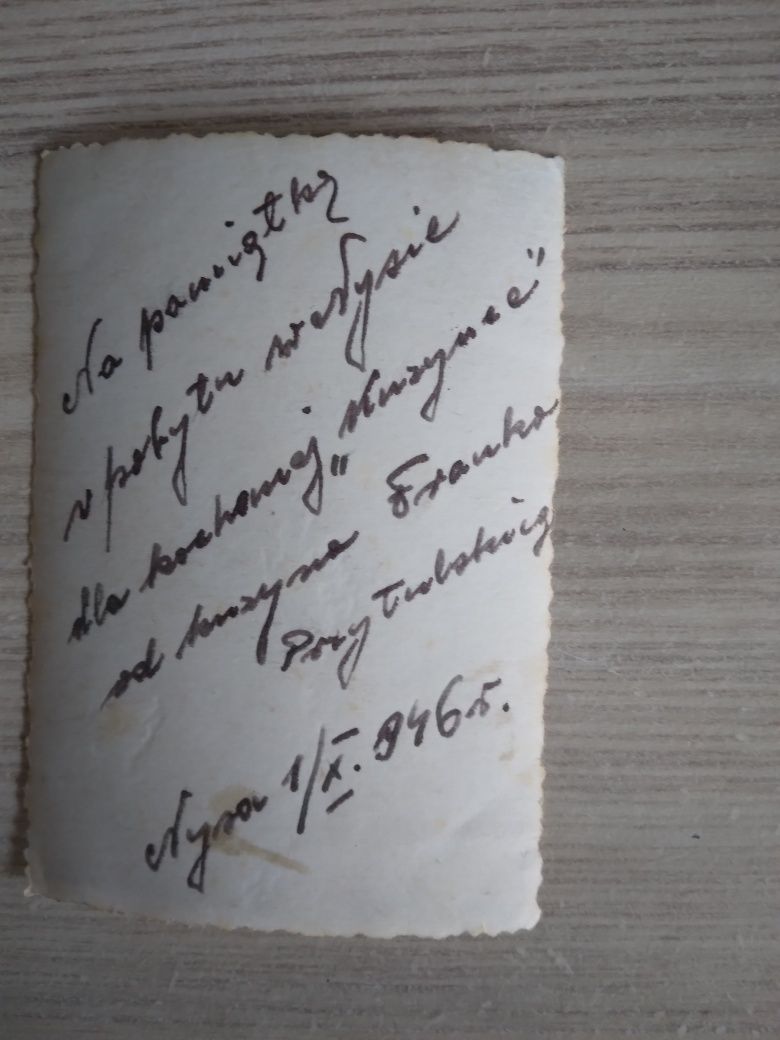 Na pamiątkę
z pobytu w Nysie
dla kochanej „Kuzynce”
od kuzyna Franka
Przytulskieg
Nysa 1/X. 946 r.